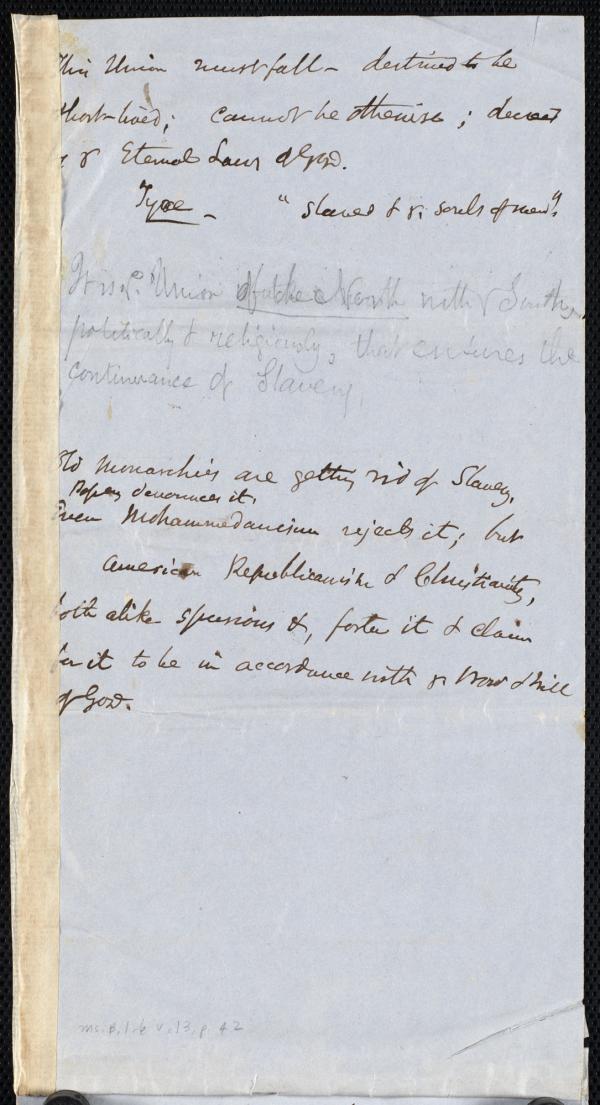 This Union must fall – destined to be
short-lived; cannot be otherwise; decreed
by yᵉ Eternal Laws of God.
Tyre – "slaves & yᵉ souls of men".
It is yᵉ Union of the North with yᵉ South,
politically & religiously, that ensures the
continuance of Slavery.
Old monarchies are getting rid of Slavery,
Popery denounces it,
Even Mohammedanism rejects it; but
American Republicanism & Christianity,
both alike spurious &, foster it & claim
for it to be in accordance with yᵉ Word & Will
of God.
ms. B.1.6 v.13, p. 42